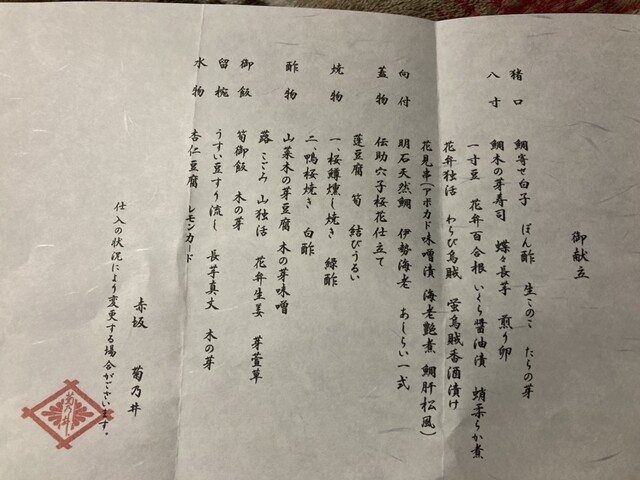 御献立
猪口　鯛寄せ白子　ぽん酢　生このこ　たらの芽
八寸　鯛木の芽寿司　蝶々長芋　煎り卵
一寸豆　花弁百合根　いくら醤油漬　蛸柔らか煮
花弁独活　わらび烏賊　蛍烏賊香酒漬け
花見串(アボカド味噌漬　海老艶煮　鯛肝松風)
向付　明石天然鯛　伊勢海老　あしらい一式
蓋物　伝助穴子桜花仕立て
蓬豆腐　筍　結びうるい
焼物　一、桜鱒燻し焼き　緑酢
二、鴨桜焼き　白酢
酢物　山菜木の芽豆腐　木の芽味噌
蕗　こごみ　山独活　花弁生姜　芽萱草
御飯　筍御飯　木の芽
留椀　うすい豆すり流し　長芋真丈　木の芽
水物　杏仁豆腐　レモンカード
仕入の状況により変更する場合がございます。
赤坂　菊乃井
菊乃井